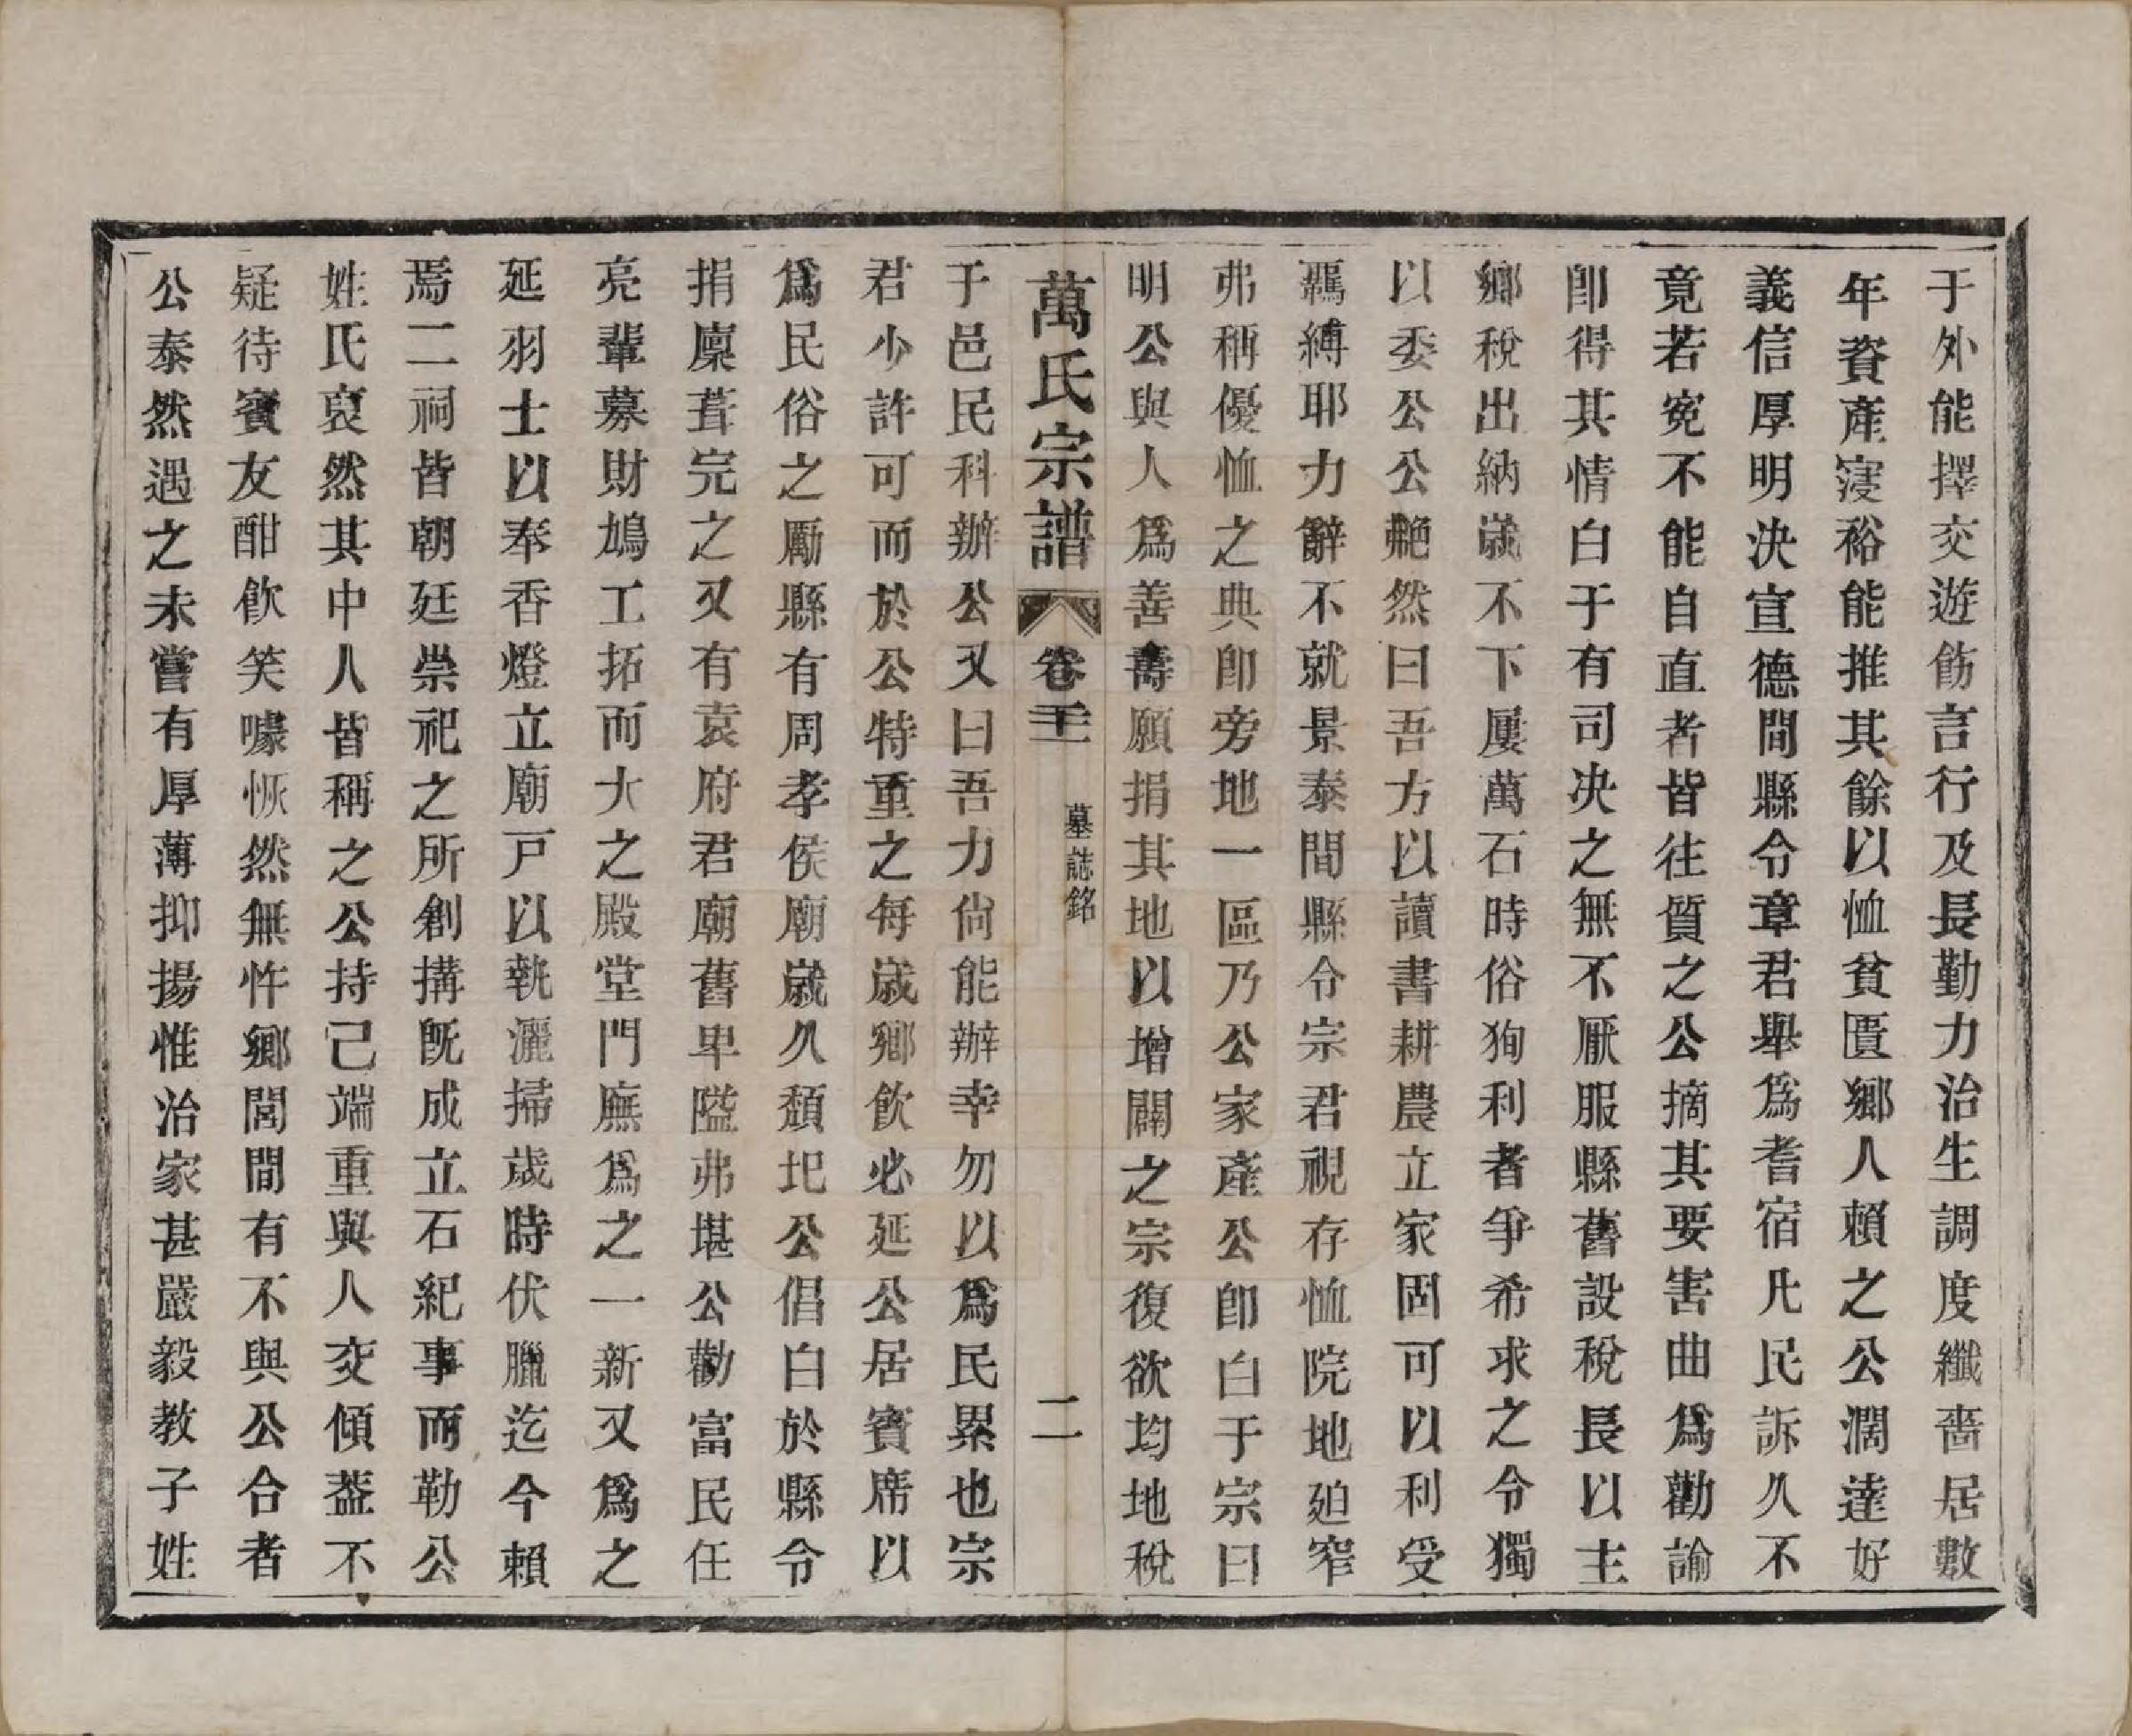 于外能擇交遊飭言行及長勤力治生調度纖嗇居數
年資產寖裕能推其餘以恤貧匱鄉人賴之公濶達好
義信厚明決宣德間縣令章君舉爲耆宿凡民訴久不
竟若寃不能自直者皆往質之公摘其要害曲爲勸諭
卽得其情白于有司决之無不厭服縣舊設稅長以主
鄉稅出納歲不下屢萬石時俗狥利者爭希求之令獨
以委公公艴然曰吾方以讀書耕農立家固可以利受
羈縛耶力辭不就景泰間縣令宗君視存恤院地廹窄
弗稱優恤之典卽旁地一區乃公家產公卽白于宗曰
明公與人爲善壽願捐其地以增闢之宗復欲均地稅
萬氏宗譜 卷二十 墓誌銘 二
于邑民科辦公又曰吾力尙能辦幸勿以爲民累也宗
君少許可而於公特重之每歲鄉飮必延公居賓席以
爲民俗之勵縣有周孝侯廟歲久頹圯公倡白於縣令
捐廩葺完之又有袁府君廟舊卑隘弗堪公勸富民任
亮輩募財鳩工拓而大之殿堂門廡爲之一新又爲之
延羽士以奉香燈立廟戸以執灑掃歲時伏臘迄今賴
焉二祠皆朝廷崇祀之所創搆旣成立石紀事而勒公
姓氏裒然其中人皆稱之公持己端重與人交傾葢不
疑待賓友酣飮笑噱恢然無忤鄉閭間有不與公合者
公泰然遇之未嘗有厚薄抑揚惟治家甚嚴毅教子姓